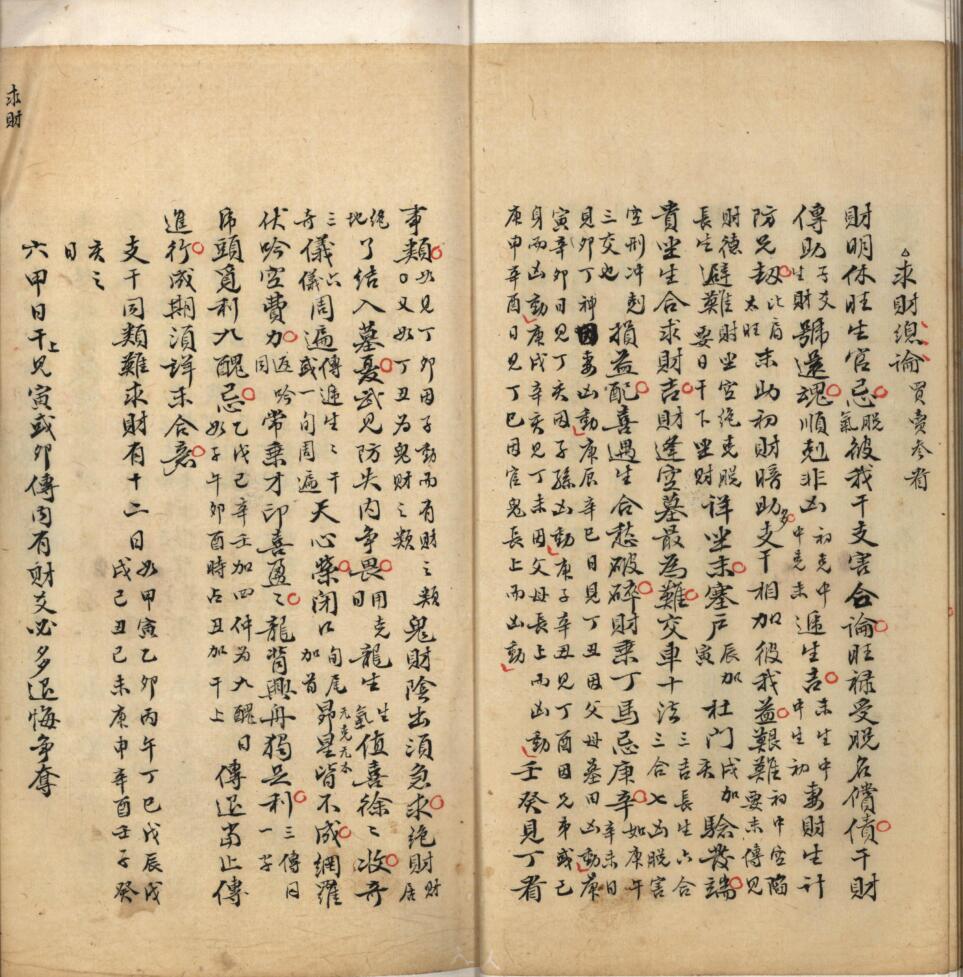 求財總論 買賣參看
財明休旺生官忌脫氣彼我干支害合論旺祿受脫名償債干財
傳助子爻生財號還魂順剋非凶初克中中克末遞生吉末生中中生初妻財生計
防兄劫比肩太旺末助初財暗助多支干相加彼我益艱難初中空陷要末傳見
財德長生避難財坐空絕克脫要日干下坐財詳坐末塞戶辰加寅杜門戌加亥驗發端
貴坐生合求財吉財逢空墓最為難交車十法三吉長生六合三合七凶脫害
空刑冲剋三交也損益配喜遇生合愁破碎財乘丁馬忌庚辛如庚午辛未日
見卯丁神因妻凶動庚辰辛巳日見丁丑因父母墓田凶動庚
寅辛卯日見丁亥因子孫凶動庚子辛丑見丁酉因兄弟或己
身而凶動庚戌辛亥見丁未因父母長上而凶動壬癸見丁看
庚申辛酉日見丁巳因官鬼長上而凶動
事類如見丁卯因子動而有財之類又如丁丑為鬼財之類鬼財陰出須急求絕財財居
絕地了結入墓憂武見防失內爭畏用克日龍生生氣值喜徐徐收奇
三奇儀六儀周遍傳遞生干或一旬周遍天心縈閉口旬尾加首昴星无克无本皆不成網羅
伏吟空費力返吟同常乘才印喜盈盈龍背興舟獨足利三傳日一字
歸頭覓利九醜忌乙戊己辛壬加四仲為九醜日如子午卯酉時占丑加干上傳退當止傳
進行成期須詳末合意
支干同類難求財有十二日如甲寅乙卯丙午丁巳戊辰戊戌己丑己未庚申辛酉壬子癸
亥之日
六甲日干上見寅或卯傳內有財爻必多退悔爭奪
求財